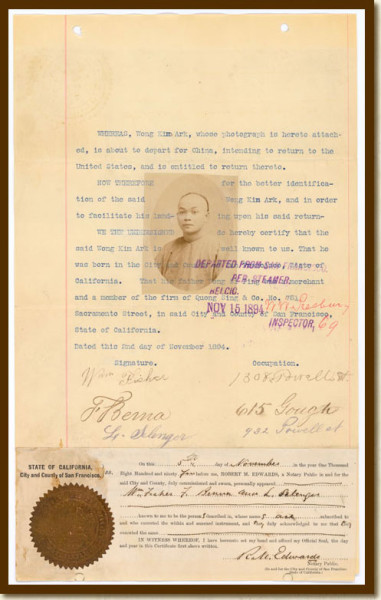 WHEREAS, Wong Kim Ark, whose photograph is hereto attach-
ed, is about to depart for China, intending to return to the
United States, and is entitled to return thereto.
NOW THEREFORE for the better identifica-
tion of the said Wong Kim Ark, and in order
to facilitate his land- ing upon his said return-
WE THE UNDERSIGNED do hereby certify that the
said Wong Kim Ark is well known to us. That he
was born in the City and State of
California. That his father merchant
and a member of the firm of Quong Sing & Co. No.
Sacramento Street, in said City and County of San Francisco,
State of California.
Dated this 2nd day of November 1894.
DEPARTED FROM
PER STEAMER
NOV 15 1894
INSPECTOR,
Signature. Occupation.
Wm Fisher
F. Benna 615 Gough
Selenger 932 Powell st
STATE OF CALIFORNIA,
City and County of San Francisco.
On this 5th day of November in the year One Thousand
Eight Hundred and ninety Four before me, ROBERT M. EDWARDS, a Notary Public in and for the
said City and County, duly commissioned and sworn, personally appeared
Wm Fisher F. Benna and L. Selenger
known to me to be the persons described in, whose names are subscribed to
and who executed the within and annexed instrument, and they duly acknowledged to me that they
executed the same
IN WITNESS WHEREOF, I have hereunto set my hand and affixed my Official Seal, the day
and year in this Certificate first above written.
R. M. Edwards
Notary Public
In and for the City and County of San Francisco
State of California.